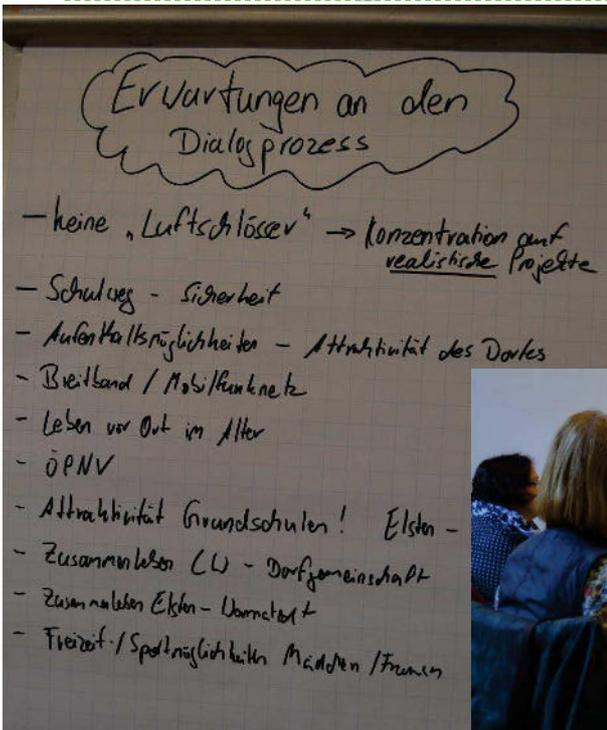 Erwartungen an den
Dialogprozess
- keine „Luftschlösser" → Konzentration auf
realistische Projekte
- Schulweg - Sicherheit
- Aufenthaltsmöglichkeiten - Attraktivität des Dorfes
- Breitband / Mobilfunknetz
- Leben vor Ort im Alter
- ÖPNV
- Attraktivität Grundschulen! Elsten -
- Zusammenleben - Dorfgemeinschaft
- Zusammenleben Elsten - Warnstedt
- Freizeit-/Sportmöglichkeiten Mädchen / Frauen